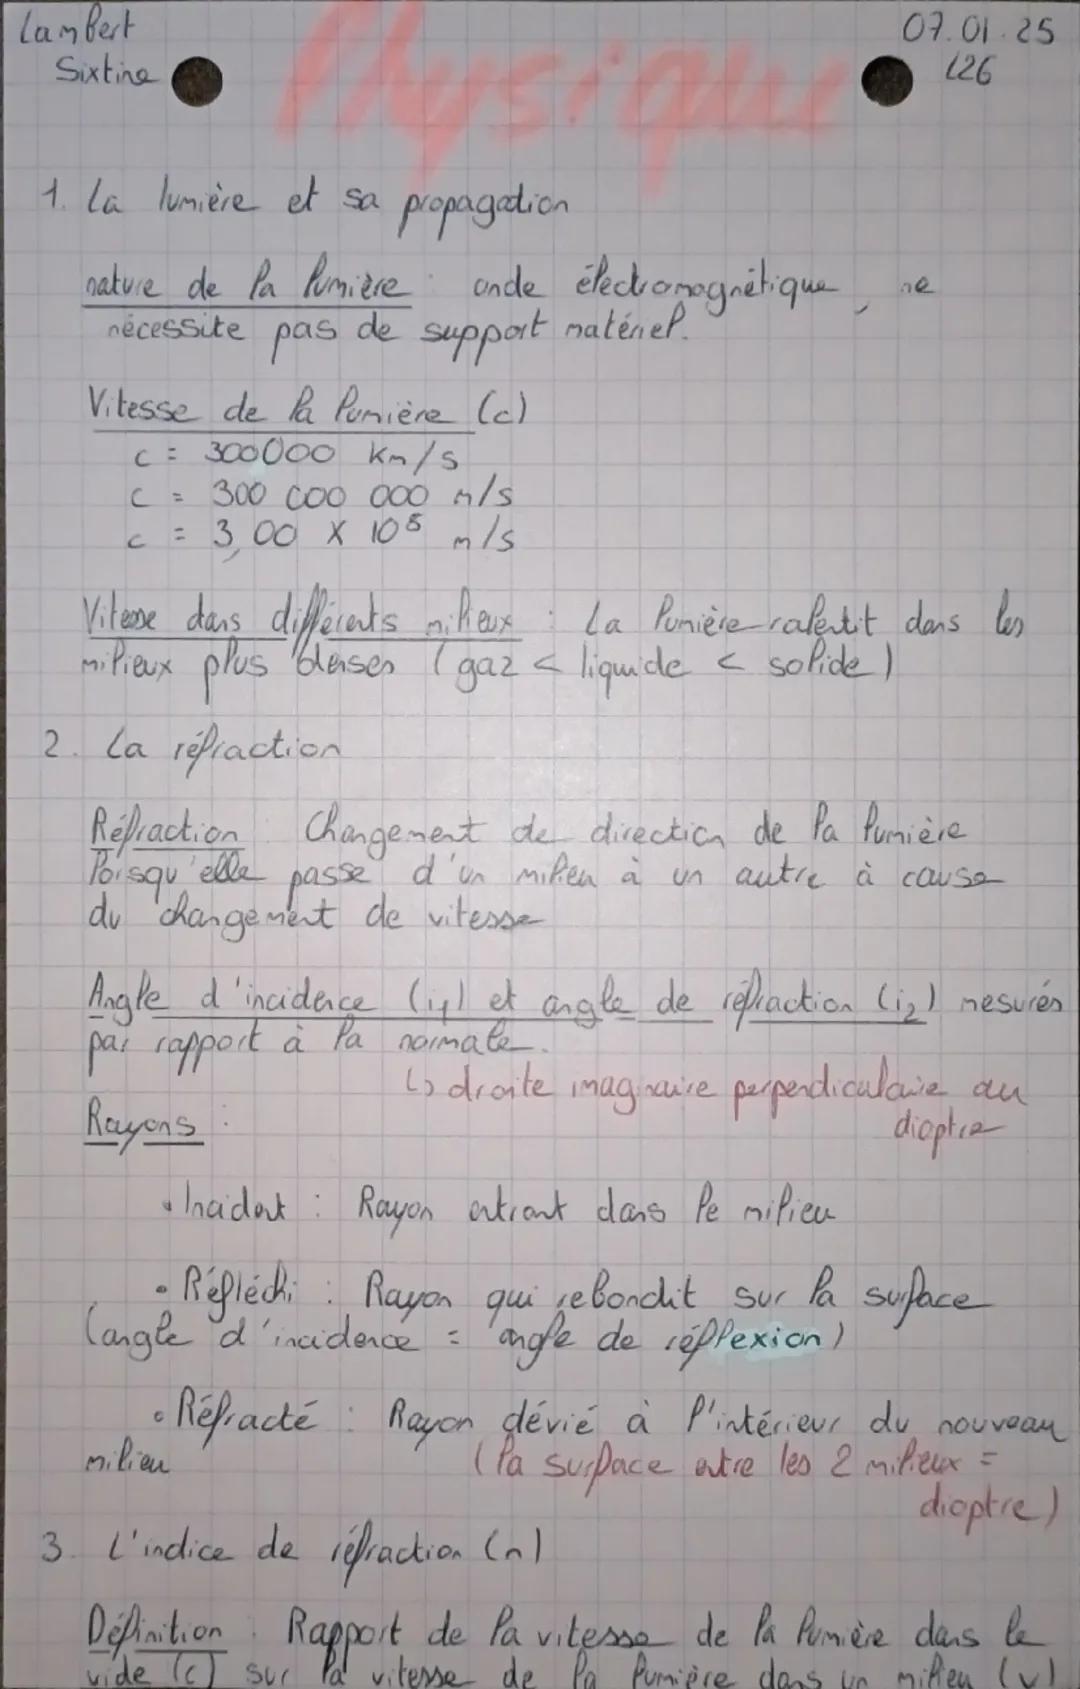 Lambert
07.01.25
Sixtine
L26
Physique
1. La lumière et sa propagation
nature de la lumière : onde électromagnétique, ne
nécessite pas de support matériel.
Vitesse de la lumière (c)
c = 300000 km/s
c = 300 000 000 m/s
c = 3,00 X 10⁸ m/s
Vitesse dans différents milieux : La lumière ralentit dans les
milieux plus denses (gaz < liquide < solide)
2. La réfraction
Réfraction : Changement de direction de la lumière
lorsqu'elle passe d'un milieu à un autre à cause
du changement de vitesse
Angle d'incidence (i₁) et angle de réfraction (i₂) mesurés
par rapport à la normale.
↳ droite imaginaire perpendiculaire au
dioptre
Rayons :
• Incident : Rayon entrant dans le milieu
• Réfléchi : Rayon qui rebondit sur la surface
(angle d'incidence = angle de réflexion)
• Réfracté : Rayon dévié à l'intérieur du nouveau
milieu
(la surface entre les 2 milieux =
dioptre)
3. L'indice de réfraction (n)
Définition : Rapport de la vitesse de la lumière dans le
vide (c) sur la vitesse de la lumière dans un milieu (v)